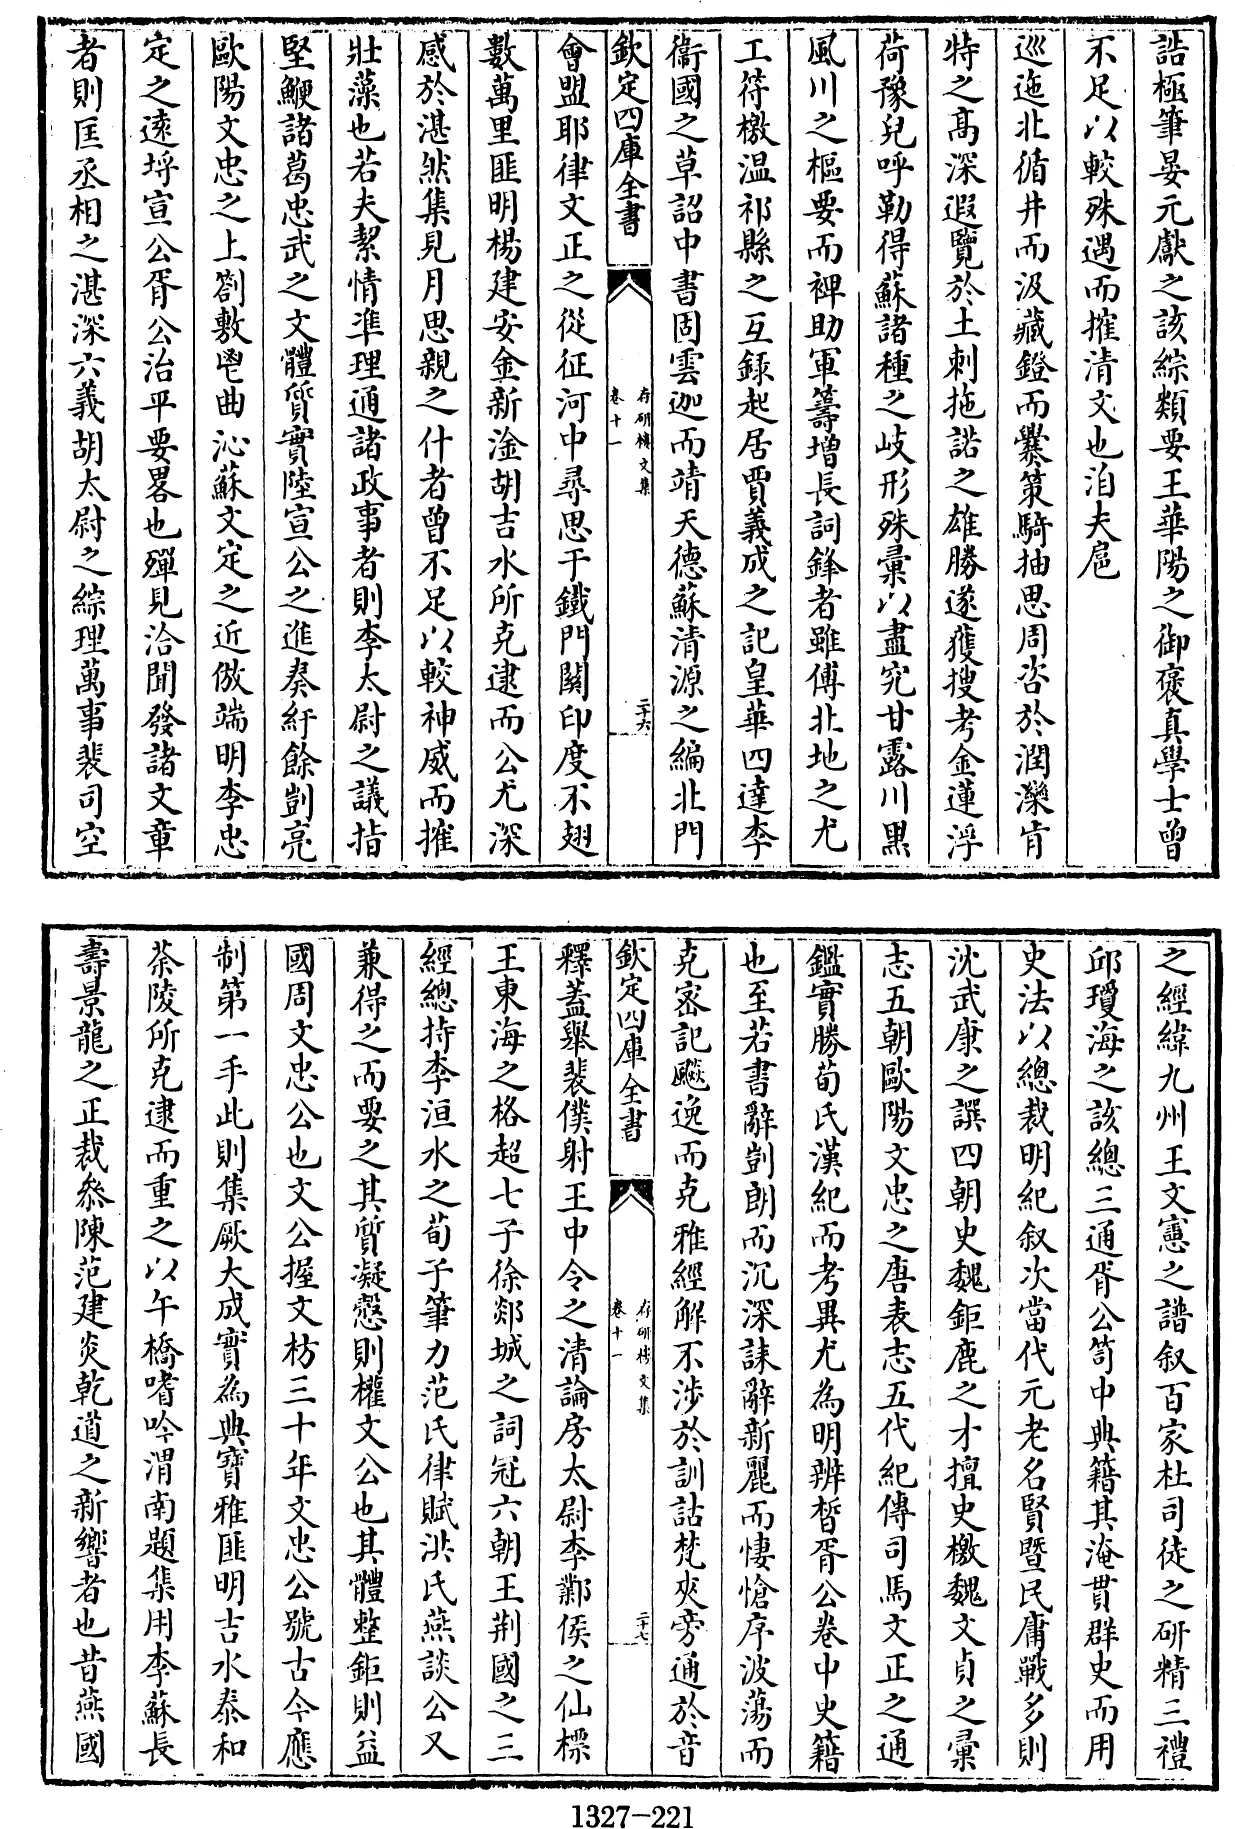 誥極筆晏元獻之該綜類要王華陽之御褒真學士曾
不足以較殊遇而搉清文也洎夫扈
巡迤北循井而汲藏鐙而爨策騎抽思周咨於潤灤肯
特之高深遐覽於土剌拖諾之雄勝遂獲搜考金蓮浮
荷豫兒呼勒得蘇諸種之岐形殊彙以盡究甘露川黑
風川之樞要而裨助軍籌增長詞鋒者雖傅北地之尤
工符檄温祁縣之互錄起居賈義成之記皇華四達李
衞國之草詔中書固雲迦而靖天德蘇清源之編北門
欽定四庫全書
存研樓文集
卷十一
二十六
會盟耶律文正之從征河中尋思干鐵門關印度不翅
數萬里匪明楊建安金新淦胡吉水所克逮而公尤深
感於湛然集見月思親之什者曾不足以較神威而搉
壯藻也若夫絜情準理通諸政事者則李太尉之議指
堅鯁諸葛忠武之文體質實陸宣公之進奏紆餘剴亮
歐陽文忠之上劄敷鬯曲沁蘇文定之近倣端明李忠
定之遠埒宣公胥公治平要畧也殫見洽聞發諸文章
者則匡丞相之湛深六義胡太尉之綜理萬事裴司空
之經緯九州王文憲之譜叙百家杜司徒之研精三禮
邱瓊海之該總三通胥公笥中典籍其淹貫群史而用
史法以總裁明紀叙次當代元老名賢暨民庸戰多則
沈武康之譔四朝史魏鉅鹿之才擅史檄魏文貞之彙
志五朝歐陽文忠之唐表志五代紀傳司馬文正之通
鑑實勝荀氏漢紀而考異尤為明辨晳胥公卷中史籍
也至若書辭剴朗而沉深誄辭新麗而悽愴序波蕩而
克密記飈逸而克雅經解不涉於訓詁梵夾旁通於音
欽定四庫全書
存研樓文集
卷十一
二十七
釋蓋舉裴僕射王中令之清論房太尉李鄴侯之仙標
王東海之格超七子徐郯城之詞冠六朝王荆國之三
經總持李洹水之荀子筆力范氏律賦洪氏燕談公又
兼得之而要之其質凝慤則權文公也其體整鉅則益
國周文忠公也文公握文枋三十年文忠公號古今應
制第一手此則集厥大成實為典寶雅匪明吉水泰和
茶陵所克逮而重之以午橋嗜吟渭南題集用李蘇長
壽景龍之正裁叅陳范建炎乾道之新響者也昔燕國
1327-221